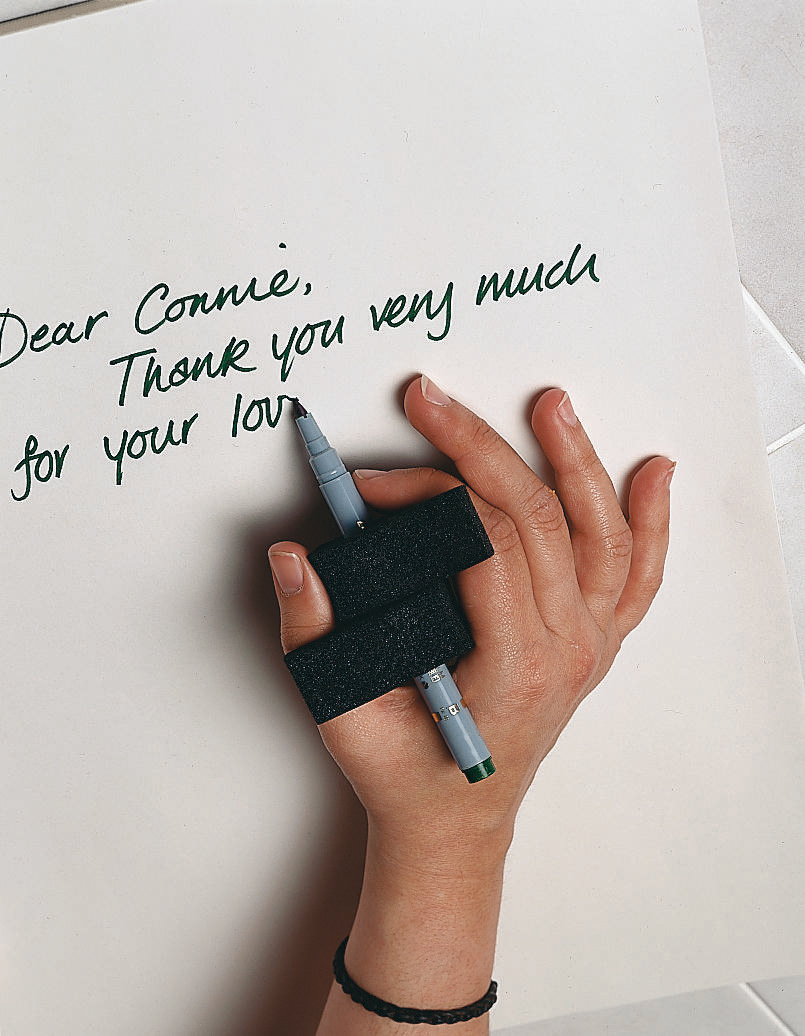 Dear Connie,
Thank you very much
for your lov